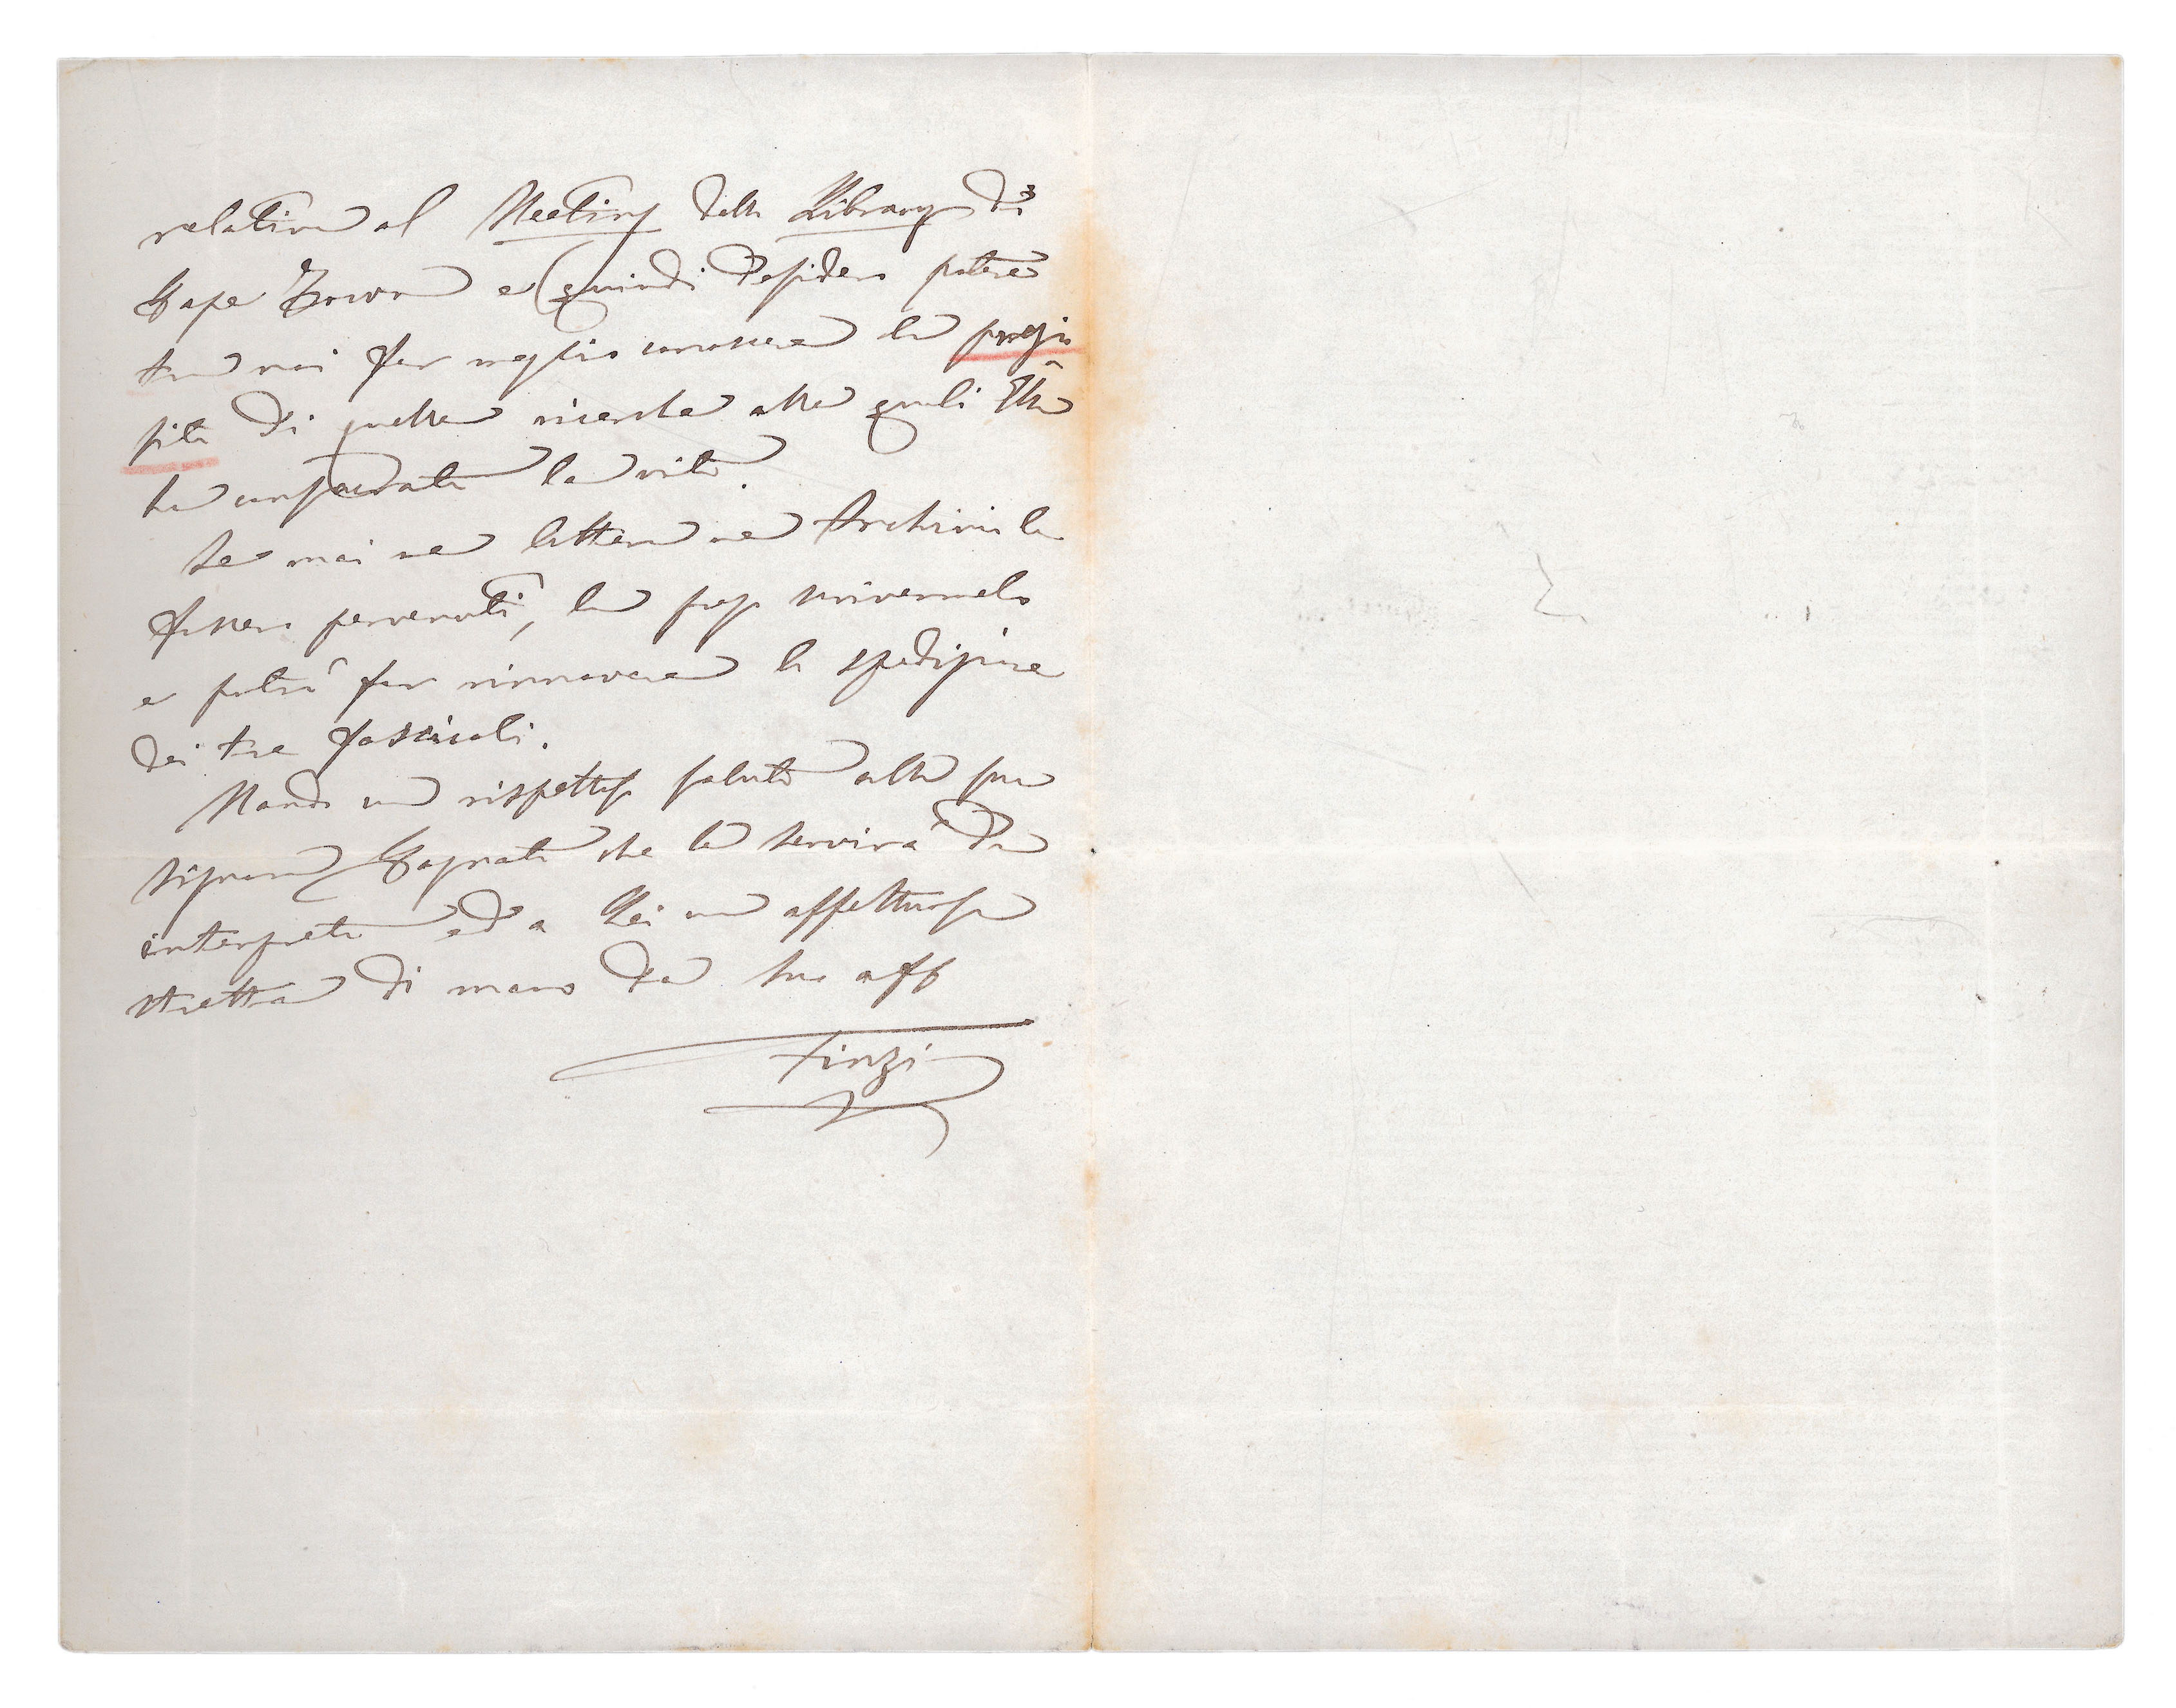 relativa al Meeting della Library di
Cape Town e quindi desidero potere
tra noi far meglio conoscere la
di quelle ricerche alle quali Ella
ha consacrata la vita.
Se mai nè lettera nè Archivio le
fossero pervenuti, la prego scrivermelo
e potrò far rinnovare la spedizione
dei tre fascicoli.
Mando un rispettoso saluto alla sua
Signora Cognata che le servirà da
interprete ed a Lei una affettuosa
stretta di mano dal suo aff
Finzi